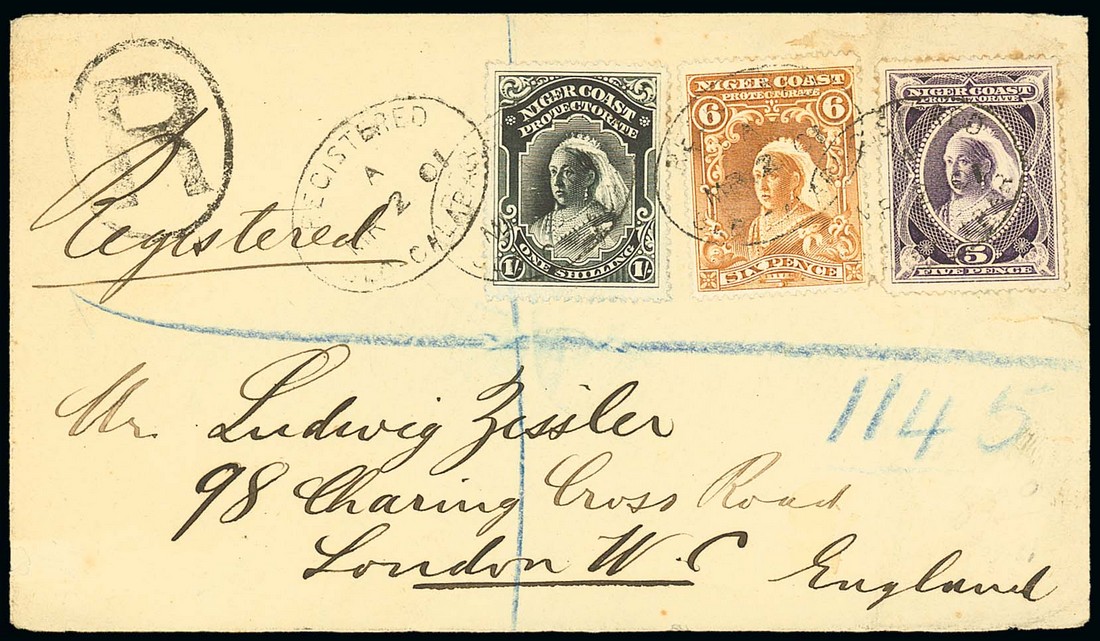 R
Registered
REGISTERED
A
MR 2 01
OLD CALABAR
NIGER COAST
PROTECTORATE
ONE SHILLING
1/- 1/-
NIGER COAST
PROTECTORATE
6 6
SIX PENCE
NIGER COAST
PROTECTORATE
5
FIVE PENCE
1145
Mr. Ludwig Zissler
98 Charing Cross Road
London W.C
England